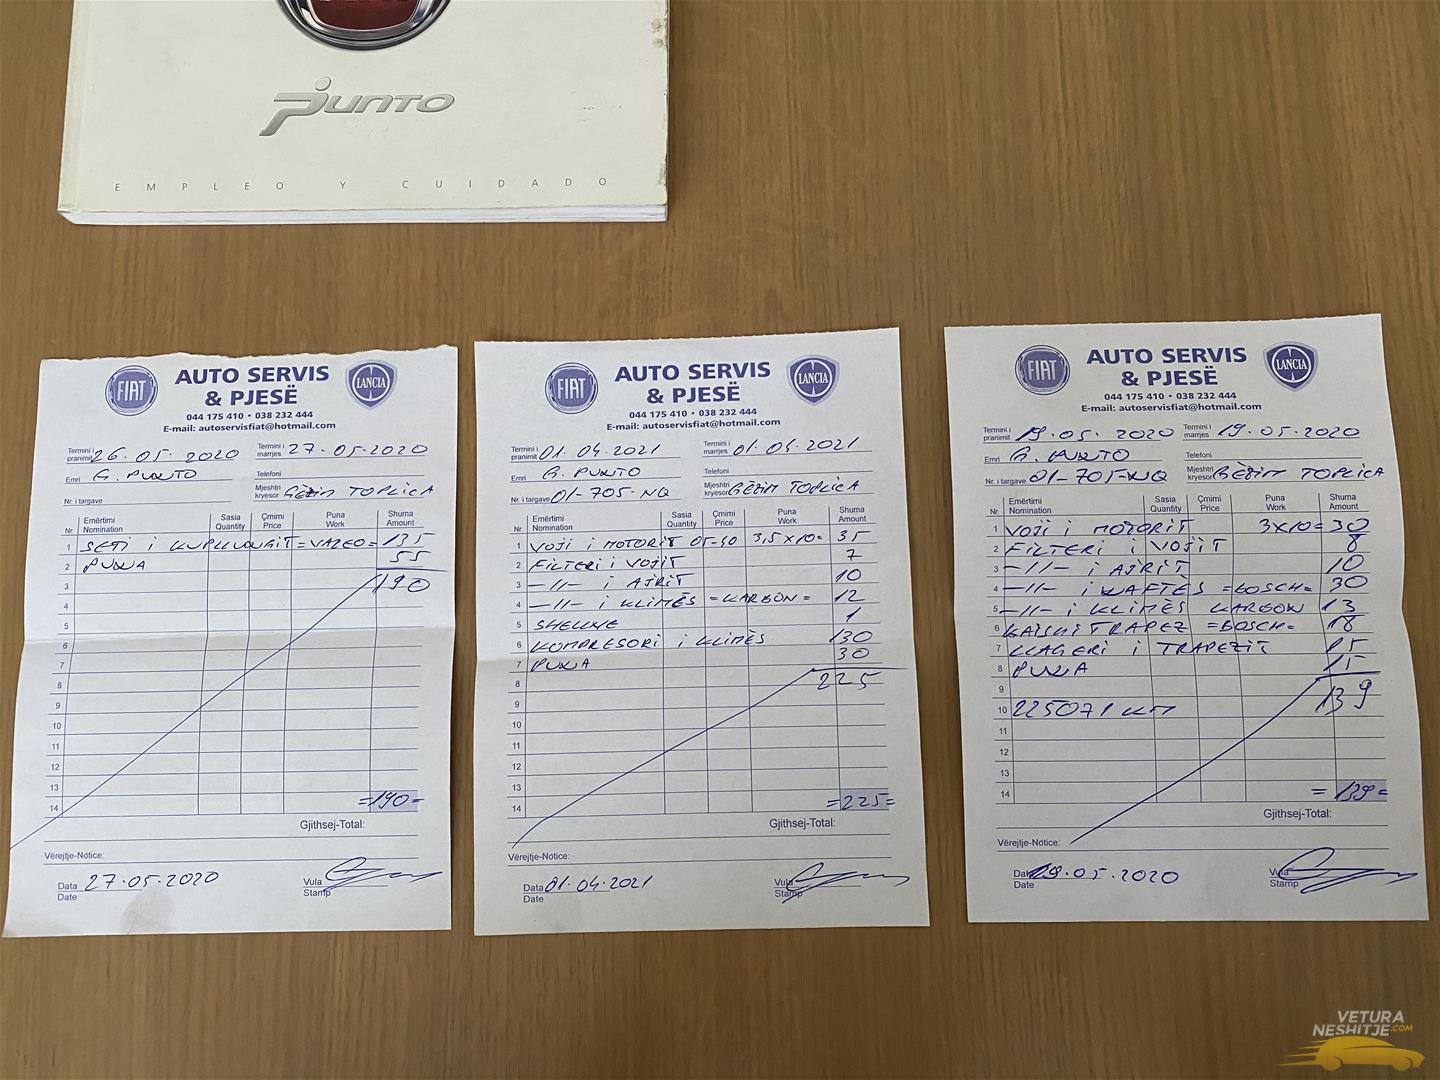 PUNTO
EMPLEO Y CUIDADO
FIAT
AUTO SERVIS
& PJESË
LANCIA
044 175 410 • 038 232 444
E-mail: autoservisfiat@hotmail.com
Termini i pranimit 26.05.2020 Termini i marrjes 27.05.2020
Emri G. PUNTO Telefoni
Nr. i targave Mjeshtri kryesor GËZIM TOPLICA
Nr Emërtimi Nomination Sasia Quantity Çmimi Price Puna Work Shuma Amount
1 SETI I KUPLUNGIT =VALEO= 135
2 PUNA 55
3 190
4
5
6
7
8
9
10
11
12
13
14 =190=
Gjithsej-Total:
Vërejtje-Notice:
Data Date 27.05.2020 Vula Stamp
FIAT
AUTO SERVIS
& PJESË
LANCIA
044 175 410 • 038 232 444
E-mail: autoservisfiat@hotmail.com
Termini i pranimit 01.04.2021 Termini i marrjes 01.04.2021
Emri G. PUNTO Telefoni
Nr. i targave 01-705-NQ Mjeshtri kryesor GËZIM TOPLICA
Nr Emërtimi Nomination Sasia Quantity Çmimi Price Puna Work Shuma Amount
1 VOJI I MOTORIT 3,5x10= 35
2 FILTERI I VOJIT 7
3 -11- I AJRIT 10
4 -11- I KLIMËS =KARBON= 12
5 1
6 KOMPRESORI I KLIMËS 130
7 PUNA 30
8 225
9
10
11
12
13
14 =225=
Gjithsej-Total:
Vërejtje-Notice:
Data Date 01.04.2021 Vula Stamp
FIAT
AUTO SERVIS
& PJESË
LANCIA
044 175 410 • 038 232 444
E-mail: autoservisfiat@hotmail.com
Termini i pranimit 19.05.2020 Termini i marrjes 19.05.2020
Emri G. PUNTO Telefoni
Nr. i targave 01-705-NQ Mjeshtri kryesor GËZIM TOPLICA
Nr Emërtimi Nomination Sasia Quantity Çmimi Price Puna Work Shuma Amount
1 VOJI I MOTORIT 3x10= 30
2 FILTERI I VOJIT 8
3 -11- I AJRIT 10
4 -11- I NAFTËS =BOSCH= 30
5 -11- I KLIMËS KARBON 13
6 KAISHI TRAPEZ =BOSCH= 18
7 LLAGERI I TRAPEZIT 15
8 PUNA 15
9 139
10 225071 KM
11
12
13
14 =139=
Gjithsej-Total:
Vërejtje-Notice:
Data Date 19.05.2020 Vula Stamp
VETURA
NESHITJE.COM